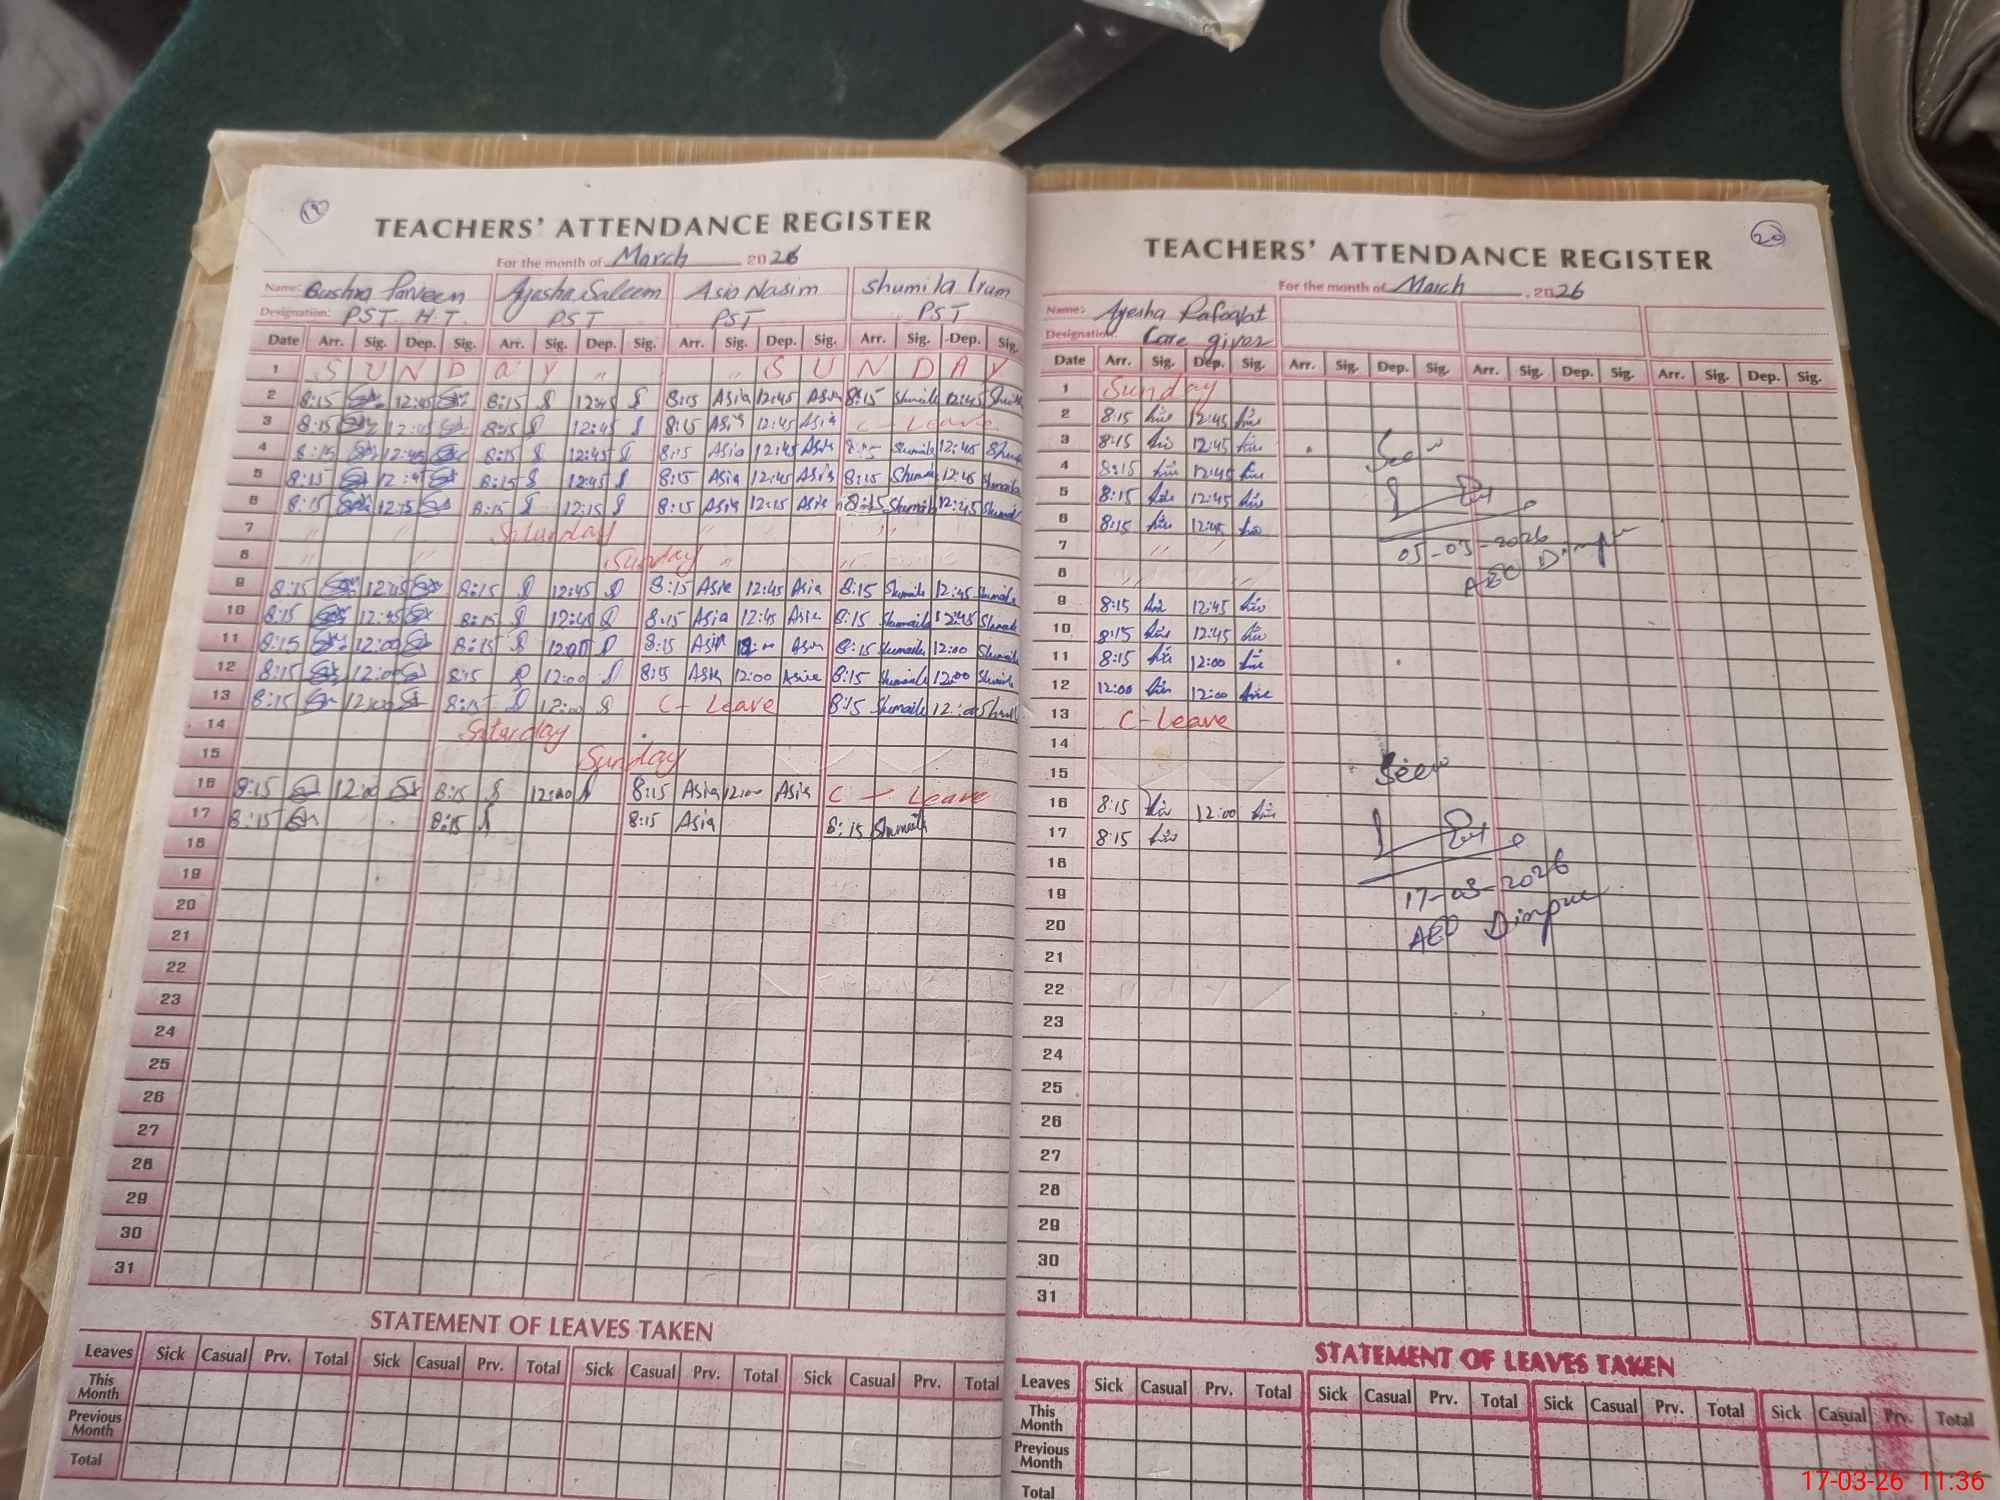 19
TEACHERS' ATTENDANCE REGISTER
For the month of March 2026
Name: Bushra Parveen Ayesha Saleem Asia Nasim Shumila Irum
Designation: PST H.T. PST PST PST
Date Arr. Sig. Dep. Sig. Arr. Sig. Dep. Sig. Arr. Sig. Dep. Sig. Arr. Sig. Dep. Sig.
1 S U N D a Y " " S U N D A Y
2 8:15 12:45 8:15 12:45 8:15 Asia 12:45 Asia 8:15 Shumaila 12:45
3 8:15 12:45 8:15 12:45 8:15 Asia 12:45 Asia C - Leave
4 8:15 12:45 8:15 12:45 8:15 Asia 12:45 Asia 8:15 Shumaila 12:45
5 8:15 12:45 8:15 12:45 8:15 Asia 12:45 Asia 8:15 Shumaila 12:45 Shumaila
6 8:15 12:15 8:15 12:15 8:15 Asia 12:15 Asia 8:15 Shumaila 12:45 Shumaila
7 " " Saturday " "
8 " " Sunday "
9 8:15 12:45 8:15 12:45 8:15 Asia 12:45 Asia 8:15 Shumaila 12:45 Shumaila
10 8:15 12:45 8:15 12:45 8:15 Asia 12:45 Asia 8:15 Shumaila 12:45 Shumaila
11 8:15 12:00 8:15 12:00 8:15 Asia 12:00 Asia 8:15 Shumaila 12:00 Shumaila
12 8:15 12:00 8:15 12:00 8:15 Asia 12:00 Asia 8:15 Shumaila 12:00 Shumaila
13 8:15 12:00 8:15 12:00 C - Leave 8:15 Shumaila 12:00
14 Saturday
15 Sunday
16 8:15 12:00 8:15 12:00 8:15 Asia 12:00 Asia C - Leave
17 8:15 8:15 8:15 Asia 8:15 Shumaila
18
19
20
21
22
23
24
25
26
27
28
29
30
31
STATEMENT OF LEAVES TAKEN
Leaves Sick Casual Prv. Total Sick Casual Prv. Total Sick Casual Prv. Total Sick Casual Prv. Total
This Month
Previous Month
Total
20
TEACHERS' ATTENDANCE REGISTER
For the month of March, 2026
Name: Ayesha Rafaqat
Designation: Care giver
Date Arr. Sig. Dep. Sig. Arr. Sig. Dep. Sig. Arr. Sig. Dep. Sig. Arr. Sig. Dep. Sig.
1 Sunday
2 8:15 12:45
3 8:15 12:45 Seen
4 8:15 12:45
5 8:15 12:45
6 8:15 12:45
7 " "
05-03-2026
8 " "
AEO Dimpur
9 8:15 12:45
10 8:15 12:45
11 8:15 12:00
12 12:00 12:00
13 C - Leave
14
15 Seen
16 8:15 12:00
17 8:15
18
19 17-03-2026
20 AEO Dimpur
21
22
23
24
25
26
27
28
29
30
31
STATEMENT OF LEAVES TAKEN
Leaves Sick Casual Prv. Total Sick Casual Prv. Total Sick Casual Prv. Total Sick Casual Prv. Total
This Month
Previous Month
Total
17-03-26 11:36